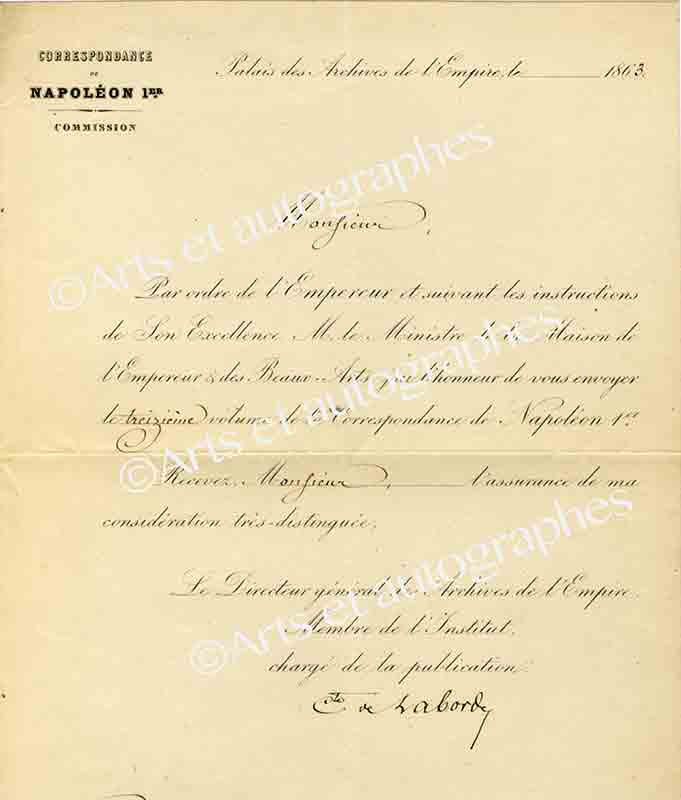 CORRESPONDANCE
DE
NAPOLÉON 1ER
COMMISSION
Palais des Archives de l'Empire, le 1863.
Monsieur,
Par ordre de l'Empereur et suivant les instructions
de Son Excellence M. le Ministre de la Maison de
l'Empereur & des Beaux-Arts, j'ai l'honneur de vous envoyer
le treizième volume de la Correspondance de Napoléon 1er
Recevez, Monsieur, l'assurance de ma
considération très-distinguée.
Le Directeur général des Archives de l'Empire,
Membre de l'Institut,
chargé de la publication.
Cte de Laborde
©Arts et autographes
©Arts et autographes
©Arts et autographes